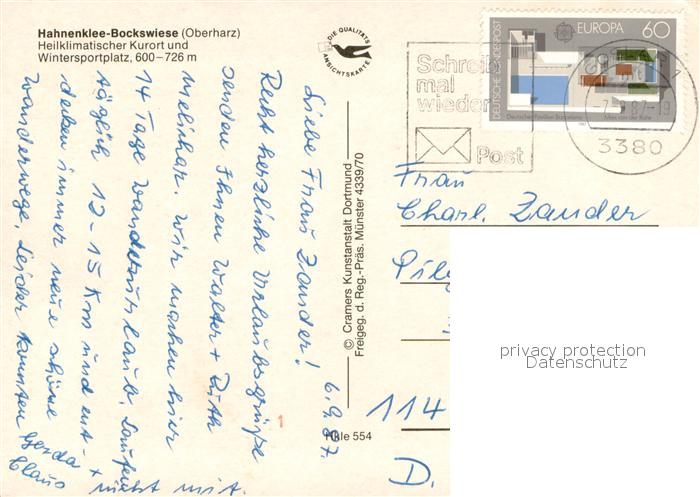 Hahnenklee-Bockswiese (Oberharz)
Heilklimatischer Kurort und
Wintersportplatz, 600–726 m
DIE QUALITÄTS
ANSICHTSKARTE
6.9.87.
Liebe Frau Zander!
Recht herzliche Urlaubsgrüße
senden Ihnen Walter + Ruth
Wir machen hier
14 Tage Wanderurlaub. Laufen
täglich 12-15 Km und ent-
decken immer neue schöne
Wanderwege. Leider konnten Gerda +
Claus nicht mit.
© Cramers Kunstanstalt Dortmund
Freigeg. d. Reg.-Präs. Münster 4339/70
Hkle 554
Schreib
mal
wieder
Post
DEUTSCHE BUNDESPOST
EUROPA 60
Deutscher Pavillon Barcelona
Mies van der Rohe
3380
Frau
Charl. Zander
114
D.
privacy protection
Datenschutz